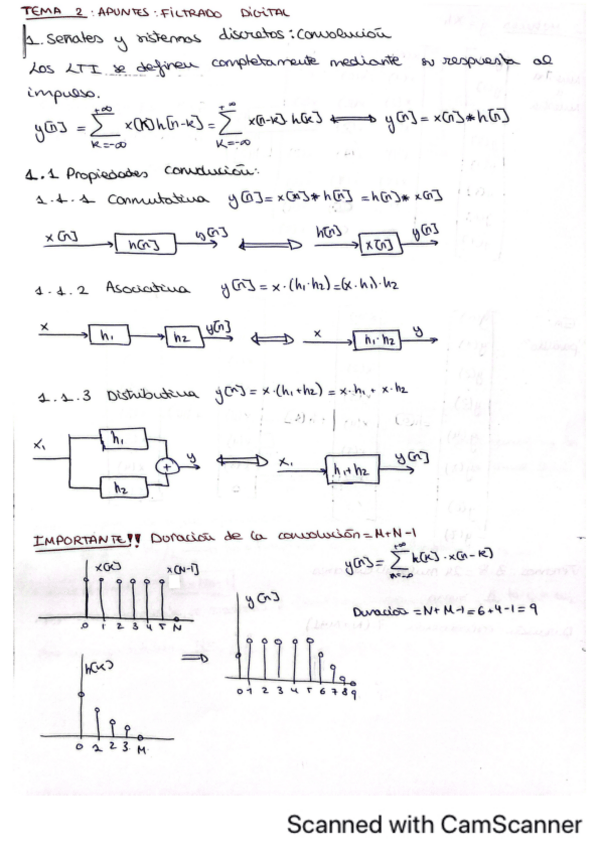 TEMA 2: APUNTES: FILTRADO DIGITAL
1. Señales y sistemas discretos: Convolución
Los LTI se definen completamente mediante su respuesta al
impulso.
y[n] = Σ_{k=-∞}^{+∞} x[k] h[n-k] = Σ_{k=-∞}^{+∞} x[n-k] h[k] ⟺ y[n] = x[n] * h[n]
1.1 Propiedades convolución:
1.1.1 Conmutativa y[n] = x[n] * h[n] = h[n] * x[n]
x[n] h[n] y[n] ⟺ h[n] x[n] y[n]
1.1.2 Asociativa y[n] = x·(h1·h2) = (x·h1)·h2
x h1 h2 y[n] ⟺ x h1·h2 y
1.1.3 Distributiva y[n] = x·(h1+h2) = x·h1 + x·h2
x1 h1 h2 + y ⟺ x1 h1+h2 y[n]
IMPORTANTE!! Duración de la convolución = M+N-1
x[k] x[N-1]
0 1 2 3 4 5 N
y[n] = Σ_{k=-∞}^{+∞} h[k]·x[n-k]
Duración = N+M-1 = 6+4-1 = 9
y[n]
0 1 2 3 4 5 6 7 8 9
⇒
h[k]
0 1 2 3 M
Scanned with CamScanner